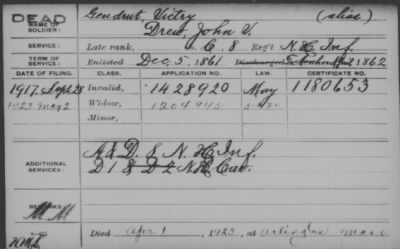 DEAD
NAME OF SOLDIER:
Goudrut, Victry (alias)
Drew, John V.
SERVICE:
Late rank, Co. C, 8 Reg't N.H. Inf.
TERM OF SERVICE:
Enlisted Dec. 5, 1861 Discharged 1862
DATE OF FILING.
CLASS.
APPLICATION NO.
LAW.
CERTIFICATE NO.
1917. Sept 28
Invalid,
1428920
May
1180653
1923 May 2
Widow,
1204945
Minor,
ADDITIONAL SERVICES:
A & D 8 N. H. Inf.
D 1 & D 2 N.H. Cav.
REMARKS:
Died Apr 1, 1923, at Arlington Mass